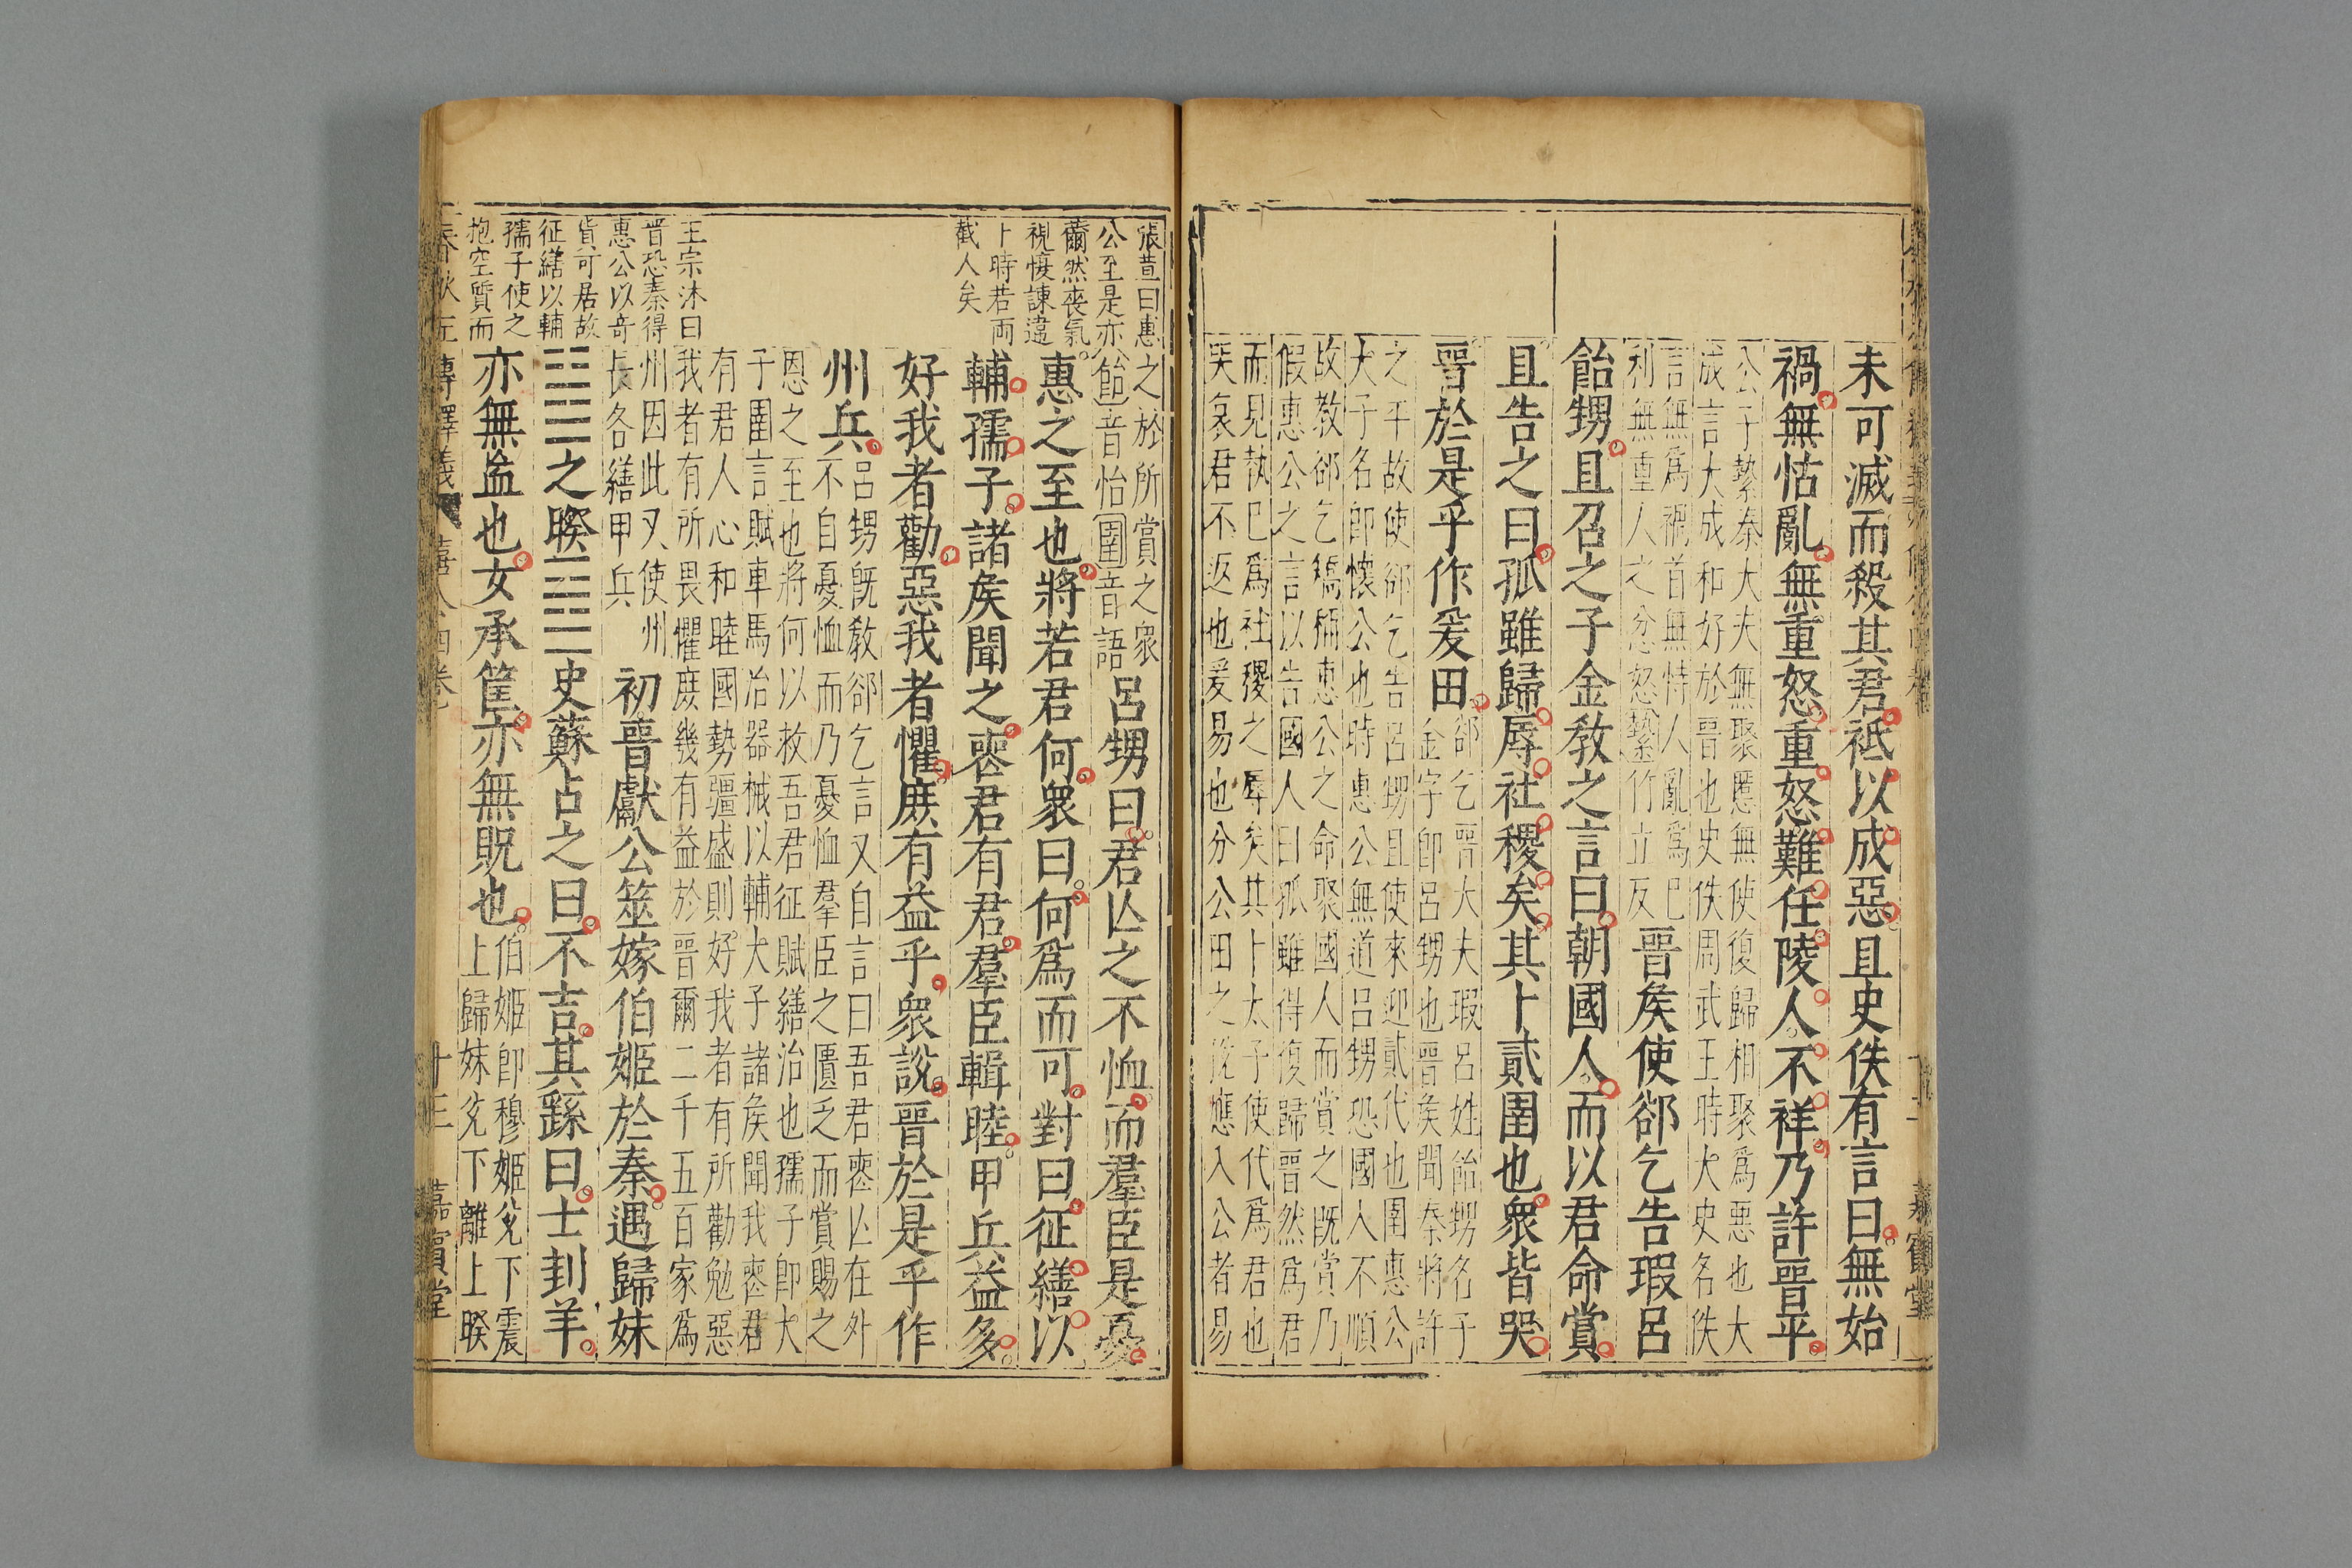 未可滅而殺其君祗以成惡且史佚有言曰無始
禍無怙亂無重怒重怒難任陵人不祥乃許晉平
公子縶秦大夫無聚慝無使復歸相聚爲惡也大
成言大成和好於晉也史佚周武王時大史名佚
言無爲禍首無恃人亂爲己
利無重人之忿怒縶竹立反
晉矦使郤乞告瑕呂
飴甥且召之子金敎之言曰朝國人而以君命賞
且告之曰孤雖歸辱社稷矣其卜貳圉也衆皆哭
晉於是乎作爰田
郤乞晉大夫瑕呂姓飴甥名子
金字卽呂甥也晉矦聞秦將許
之平故使郤乞告呂甥且使來迎貳代也圉惠公
大子名卽懷公也時惠公無道呂甥恐國人不順
故敎郤乞矯稱惠公之命聚國人而賞之旣賞乃
假惠公之言以告國人曰孤雖得復歸晉然爲君
而見執巳爲社稷之辱矣其卜太子使代爲君也
哭哀君不返也爰易也分公田之稅應入公者易
張萱曰惠
公至是亦
薾然喪氣
視愎諫違
卜時若兩
截人矣
之於所賞之衆
飴音怡圉音語
呂甥曰君亾之不恤而羣臣是憂
惠之至也將若君何衆曰何爲而可對曰征繕以
輔孺子諸矦聞之喪君有君羣臣輯睦甲兵益多
好我者勸惡我者懼庶有益乎衆說晉於是乎作
州兵
呂甥旣敎郤乞言又自言曰吾君喪亾在外
不自憂恤而乃憂恤羣臣之匱乏而賞賜之
恩之至也將何以救吾君征賦繕治也孺子卽大
子圉言賦車馬冶器械以輔大子諸矦聞我喪君
有君人心和睦國勢疆盛則好我者有所勸勉惡
我者有所畏懼庶幾有益於晉爾二千五百家爲
王宗沐曰
晉恐秦得
惠公以奇
貨可居故
征繕以輔
孺子使之
抱空質而
州因此又使州
長各繕甲兵
初晉獻公筮嫁伯姬於秦遇歸妹
䷵之睽䷥史蘇占之曰不吉其繇曰士刲羊
亦無衁也女承筐亦無貺也
伯姬卽穆姬兌下震
上歸妹兌下離上睽
春秋左傳釋義
十三
嘉賓堂